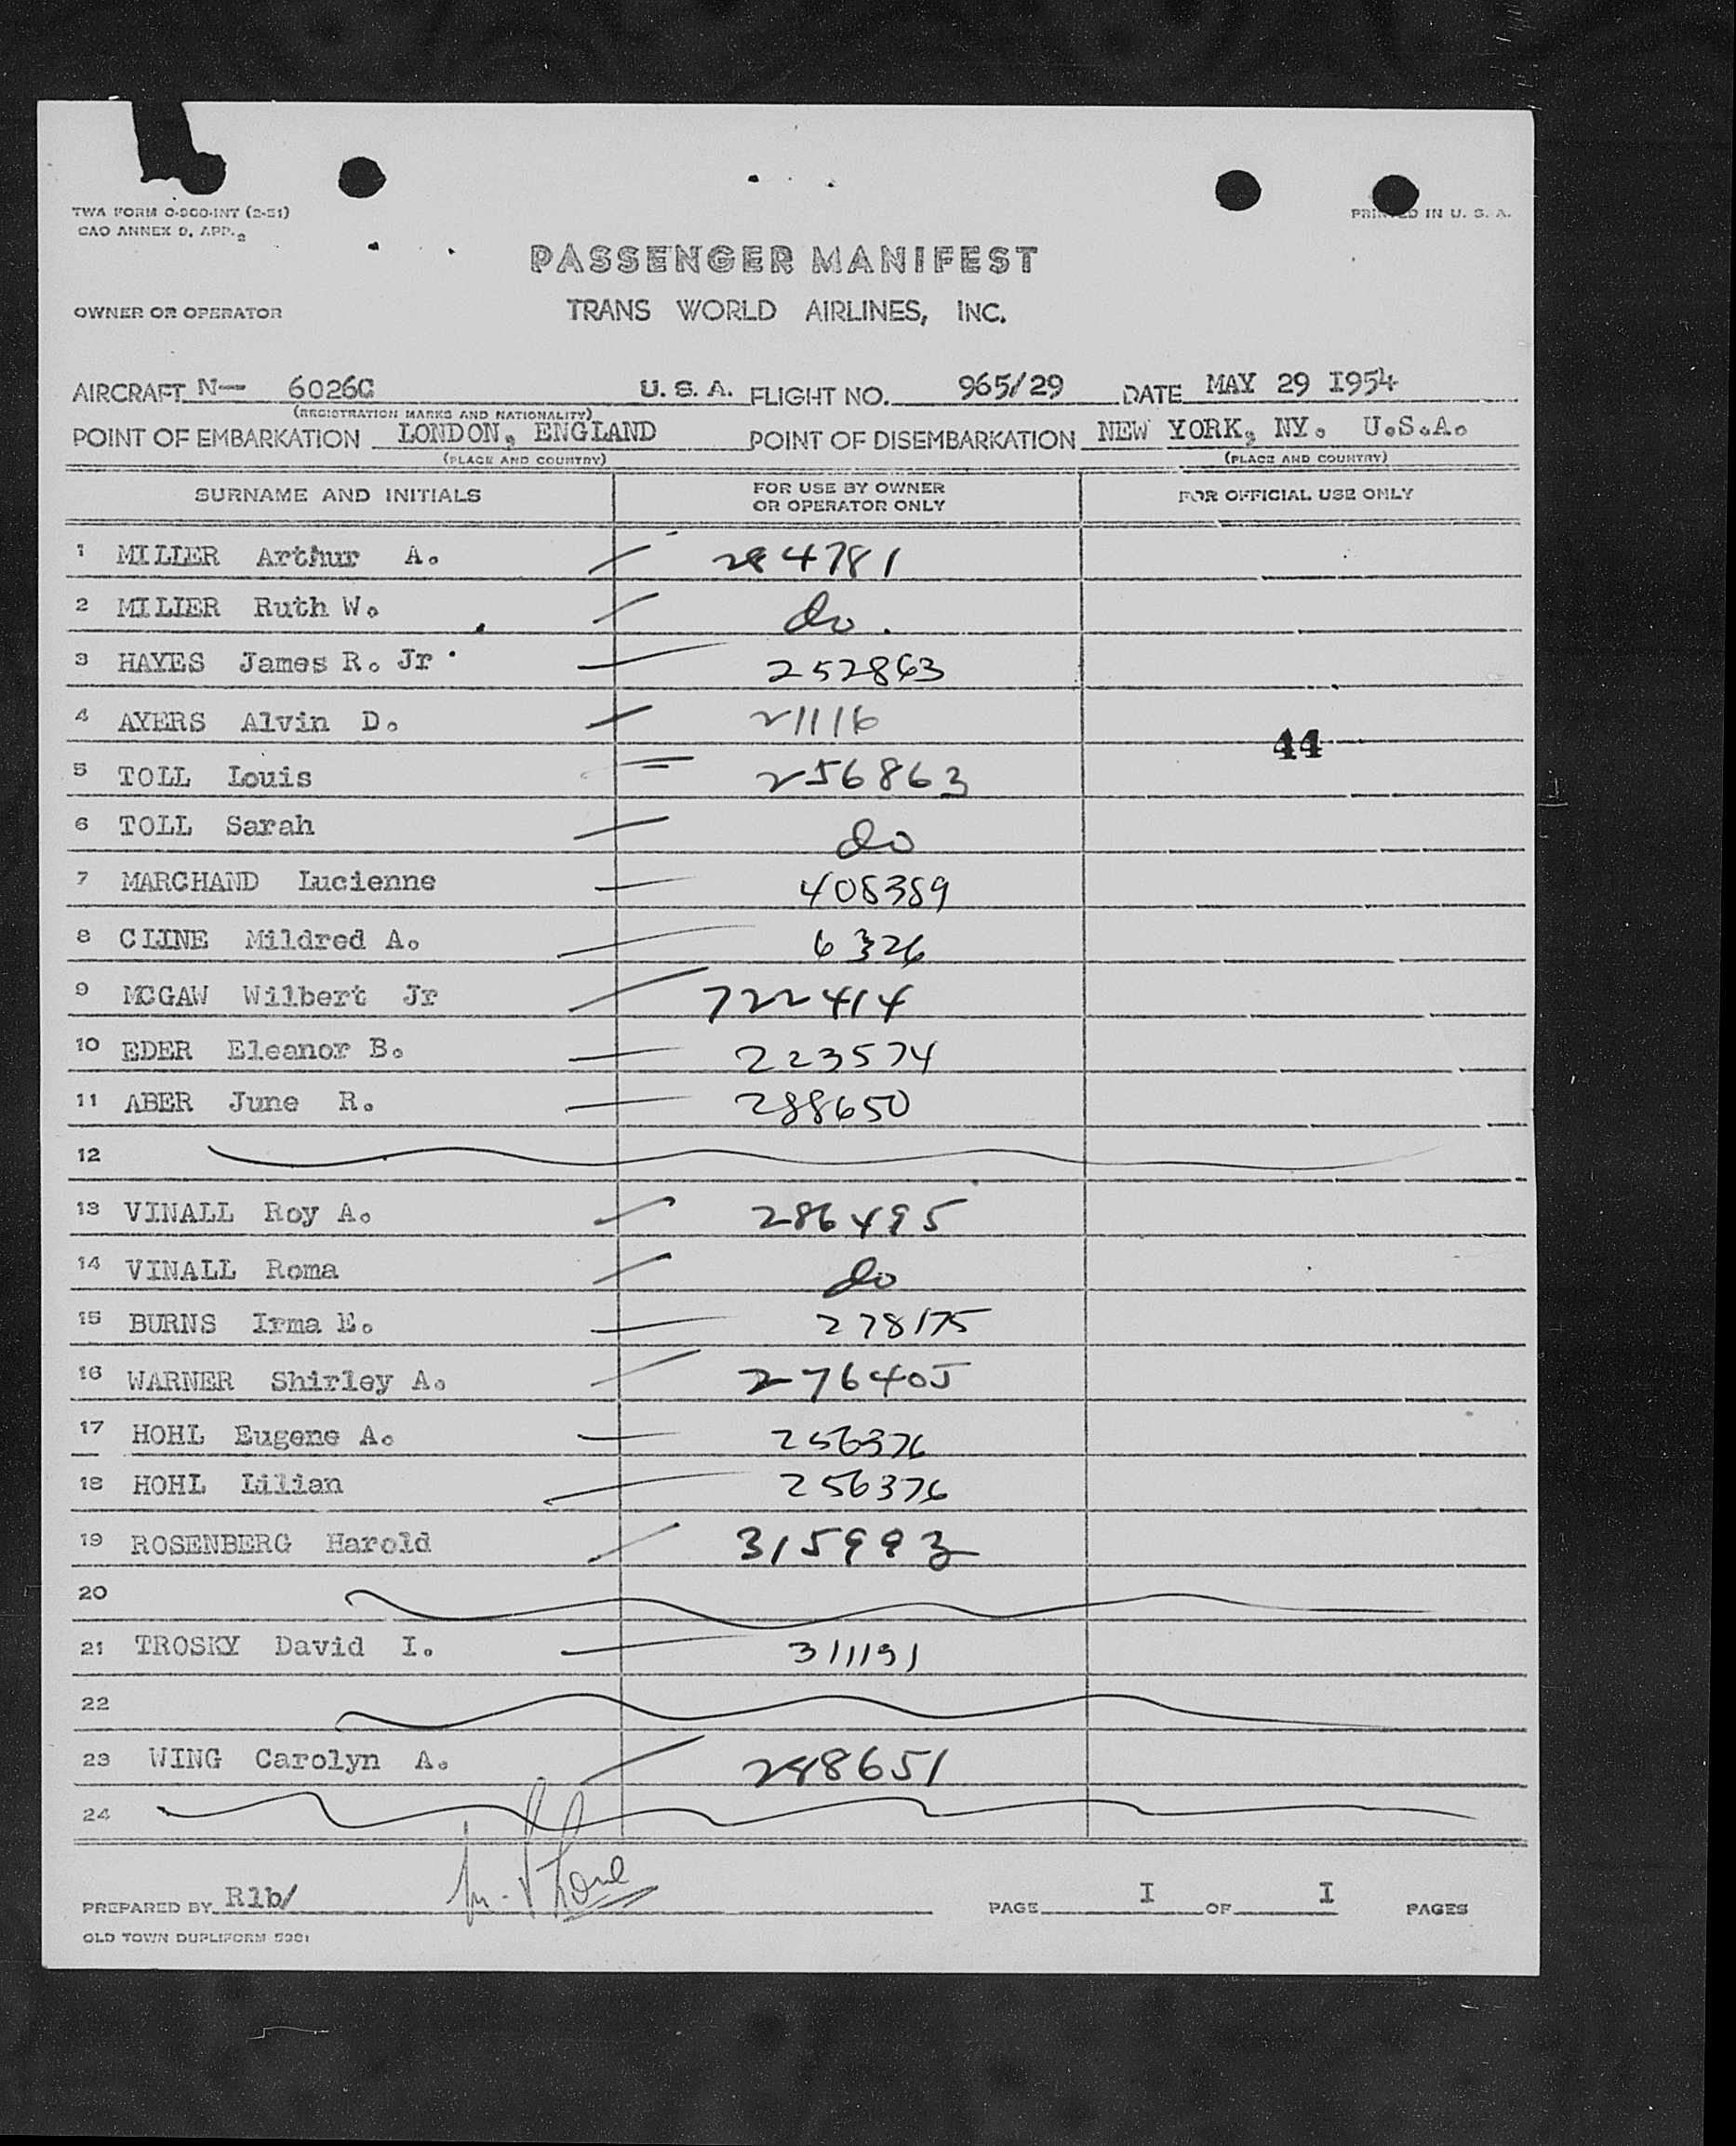 TWA FORM O-900-INT (2-51)
CAO ANNEX 9, APP. 2
PRINTED IN U. S. A.
PASSENGER MANIFEST
OWNER OR OPERATOR TRANS WORLD AIRLINES, INC.
AIRCRAFT N— 6026C U. S. A. FLIGHT NO. 965/29 DATE MAY 29 I954
(REGISTRATION MARKS AND NATIONALITY)
POINT OF EMBARKATION LONDON, ENGLAND POINT OF DISEMBARKATION NEW YORK, NY. U.S.A.
(PLACE AND COUNTRY) (PLACE AND COUNTRY)
SURNAME AND INITIALS FOR USE BY OWNER OR OPERATOR ONLY FOR OFFICIAL USE ONLY
1 MILLER Arthur A. 284781
2 MILLER Ruth W. do.
3 HAYES James R. Jr 252863
4 AYERS Alvin D. 21116
44
5 TOLL Louis 256863
6 TOLL Sarah do
7 MARCHAND Lucienne 408389
8 CLINE Mildred A. 6326
9 MCGAW Wilbert Jr 722414
10 EDER Eleanor B. 223574
11 ABER June R. 288650
12
13 VINALL Roy A. 286495
14 VINALL Roma do
15 BURNS Irma E. 278175
16 WARNER Shirley A. 276405
17 HOHL Eugene A. 256376
18 HOHL Lilian 256376
19 ROSENBERG Harold 315993
20
21 TROSKY David I. 311191
22
23 WING Carolyn A. 288651
24
PREPARED BY Rlb/ PAGE I OF I PAGES
OLD TOWN DUPLIFORM